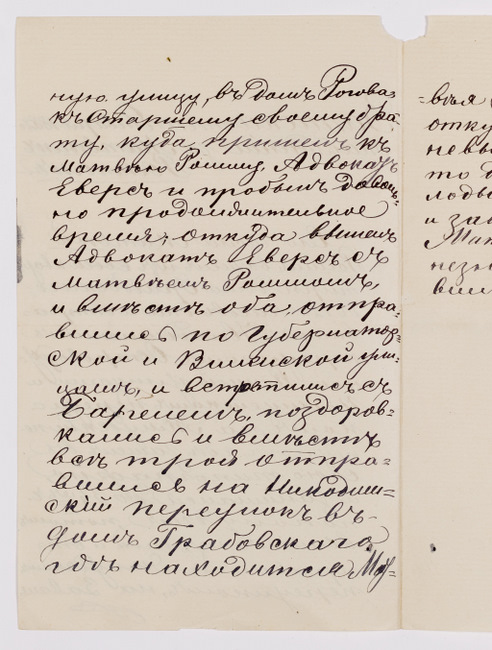 ную улицу, въ домъ Рогова,
къ старшему своему бра-
ту, куда пришелъ къ
Матвѣю Ромму, Адвокатъ
Еверсъ и пробылъ доволь-
но продолжительное
время, откуда вышелъ
Адвокатъ Еверсъ съ
Матвѣемъ Роммомъ,
и вмѣстѣ оба отпра-
вились по Губернатор-
ской и Виленской ули-
цамъ, и встрѣтились съ
поздоров-
кались и вмѣстѣ
всѣ трое отпра-
вились на Никодим-
скій переулокъ въ
домъ Грабовскаго
гдѣ находится
отку
невы
то
лоды
и зав
незн